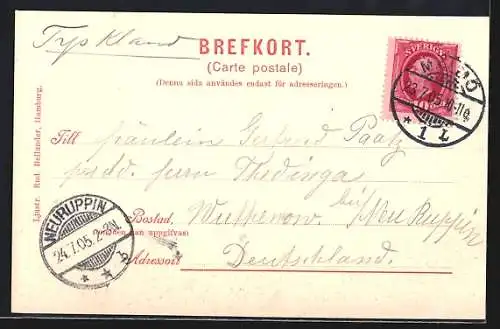 Tyskland
BREFKORT.
(Carte postale)
(Denna sida användes endast för adresseringen.)
SVERIGE
MALMÖ
23.7.05. 10-11 a.
* 1 L *
Till Fräulein Gertrud Paatz
pr. adr. Herrn Thedinga
Bostad, Wuthenow. bei Neu Ruppin
(Gatuadressen uppgifvas)
Adressort Deutschland.
NEURUPPIN
24.7.05. 2-3N.
* * b
Ljustr. Rud Bellander, Hamburg.